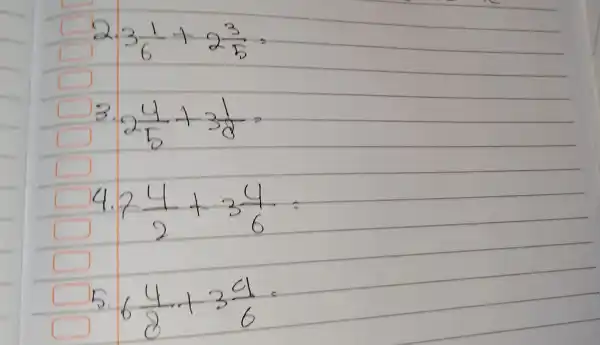 2. 3 1/6 + 2 3/5 =
3. 2 4/5 + 3 1/8 =
4. 2 4/2 + 3 4/6 =
5. 6 4/8 + 3 4/6 =